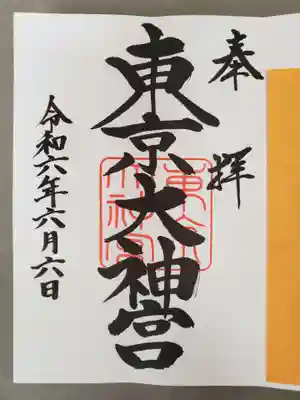 奉拝
東京大神宮
令和六年六月六日
東京大神宮